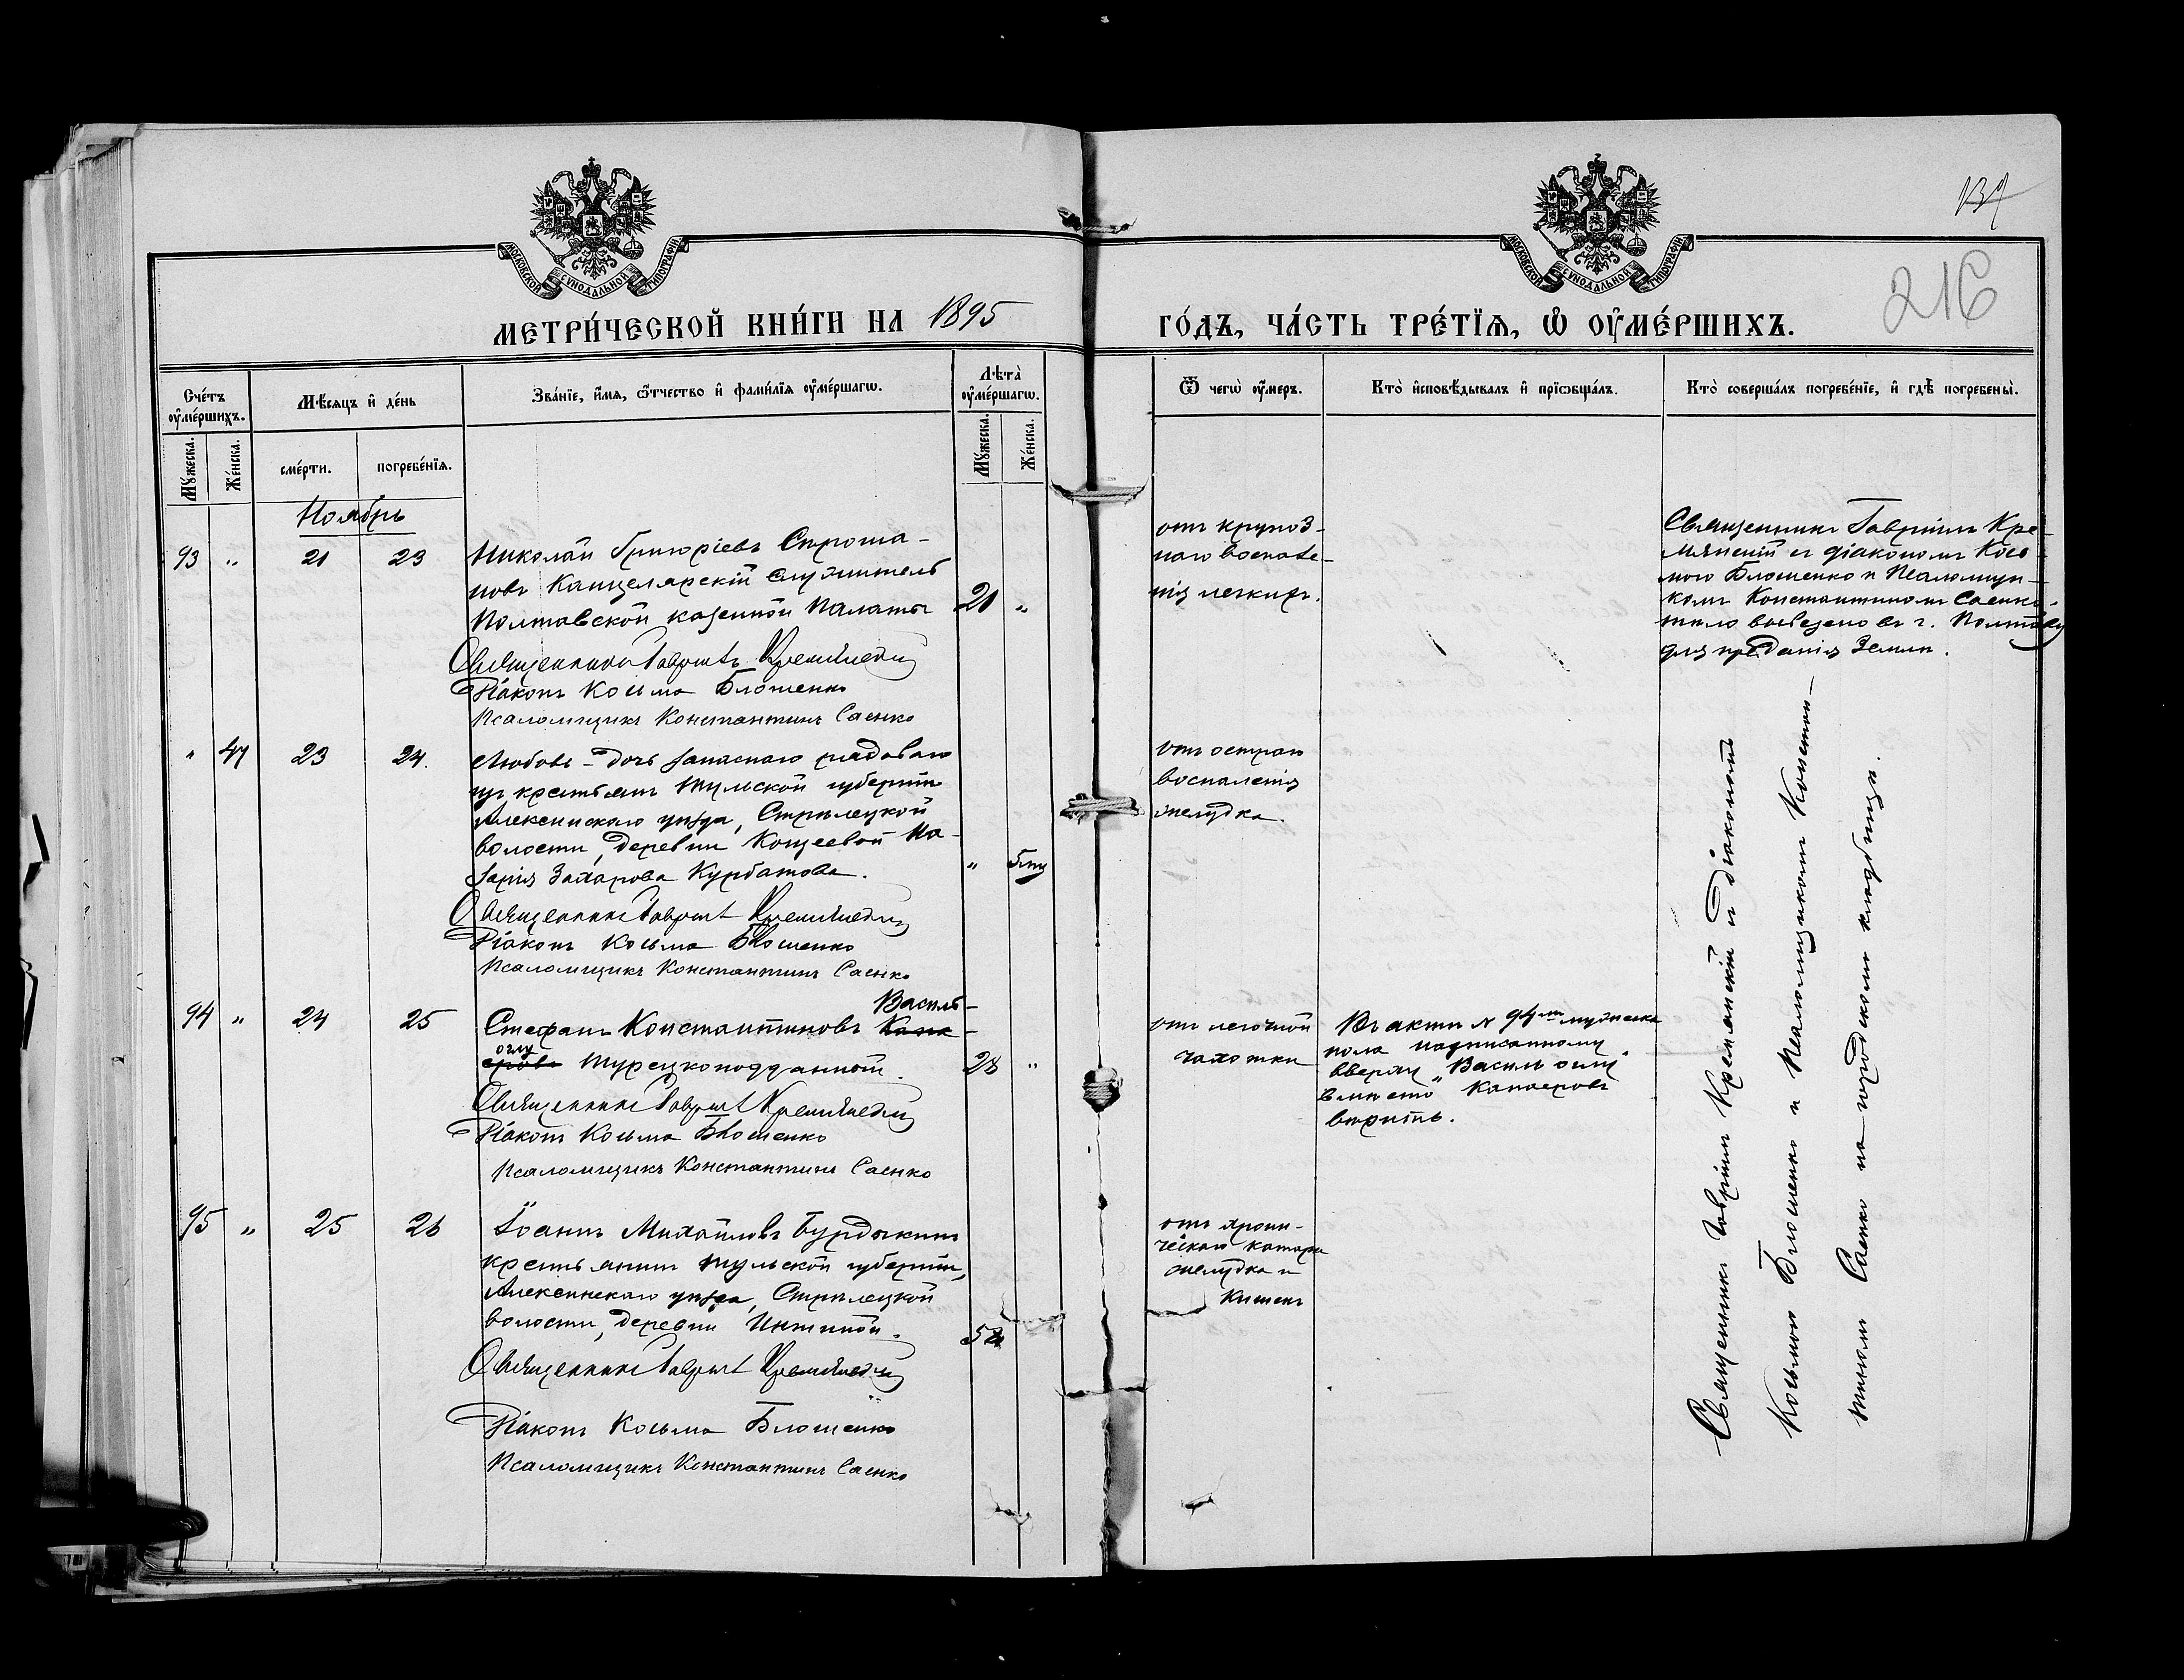 137
216
МОСКОВСКОЙ СѴНОДАЛЬНОЙ ТИПОГРАФІИ
МОСКОВСКОЙ СѴНОДАЛЬНОЙ ТИПОГРАФІИ
МЕТРИ́ЧЕСКОЙ КНИ́ГИ НА 1895
ГО́ДЪ, ЧА́СТЬ ТРЕ́ТЇѦ, Ѽ ОУ҆МЕ́РШИХЪ.
Сче́тъ оу҆ме́ршихъ.
Мѣ́сѧцъ и҆ де́нь
Зва́нїе, и҆́мѧ, ѻ҆́тчество и҆ фами́лїѧ оу҆ме́ршагѡ.
Лѣта̀ оу҆ме́ршагѡ.
Ѿ чегѡ̀ оу҆́меръ.
Кто̀ и҆сповѣ́дывалъ и҆ прїѡбща́лъ.
Кто̀ соверша́лъ погребе́нїе, и҆ гдѣ̀ погребены̀.
Мꙋ́жеска.
Же́нска.
сме́рти.
погребе́нїѧ.
Мꙋ́жеска.
Же́нска.
Ноябрь
93 " 21 23
Николай Григоріевъ Строма-
новъ Канцелярскій служитель
Полтавской казенной Палаты 21 "
Священникъ Гавріилъ Кремянскій
Діаконъ Косьма Блошенко
Псаломщикъ Константинъ Саенко
отъ крупоз-
наго воспале-
нія легкихъ.
Священникъ Гавріилъ Кре-
мянскій съ діакономъ Кось-
мою Блошенко и Псаломщи-
комъ Константиномъ Саенко.
тѣло вывезено въ г. Полтаву
для преданія земли.
" 47 23 24.
Любовь - дочь запаснаго рядоваго
изъ крестьянъ Тульской губерніи
Алексинскаго уѣзда, Стрѣлецкой
волости, деревни Кощеевой На-
зарія Захарова Курбатова. "
Священникъ Гавріилъ Кремянскій
Діаконъ Косьма Блошенко
Псаломщикъ Константинъ Саенко
отъ остраго
воспаленія
желудка.
94 " 24 25
Василь-
Стефанъ Константиновъ
оглу
Турецкоподданный. 28 "
Священникъ Гавріилъ Кремянскій
Діаконъ Косьма Блошенко
Псаломщикъ Константинъ Саенко
отъ легочной
чахотки
Въ актѣ № 94м мужеска
пола надписанному
вверху "Василь оглу"
вмѣсто
вѣрить.
95 " 25 26
Іоаннъ Михайловъ Бурдыкинъ
крестьянинъ Тульской губерніи,
Алексинскаго уѣзда, Стрѣлецкой
волости, деревни
Священникъ Гавріилъ Кремянскій
Діаконъ Косьма Блошенко
Псаломщикъ Константинъ Саенко
отъ хрони-
ческаго катара
желудка и
кишекъ
Священникъ Гавріилъ Кремянскій съ Діакономъ
Косьмою Блошенко и Псаломщикомъ Констан-
тиномъ Саенко на городскомъ кладбищѣ.